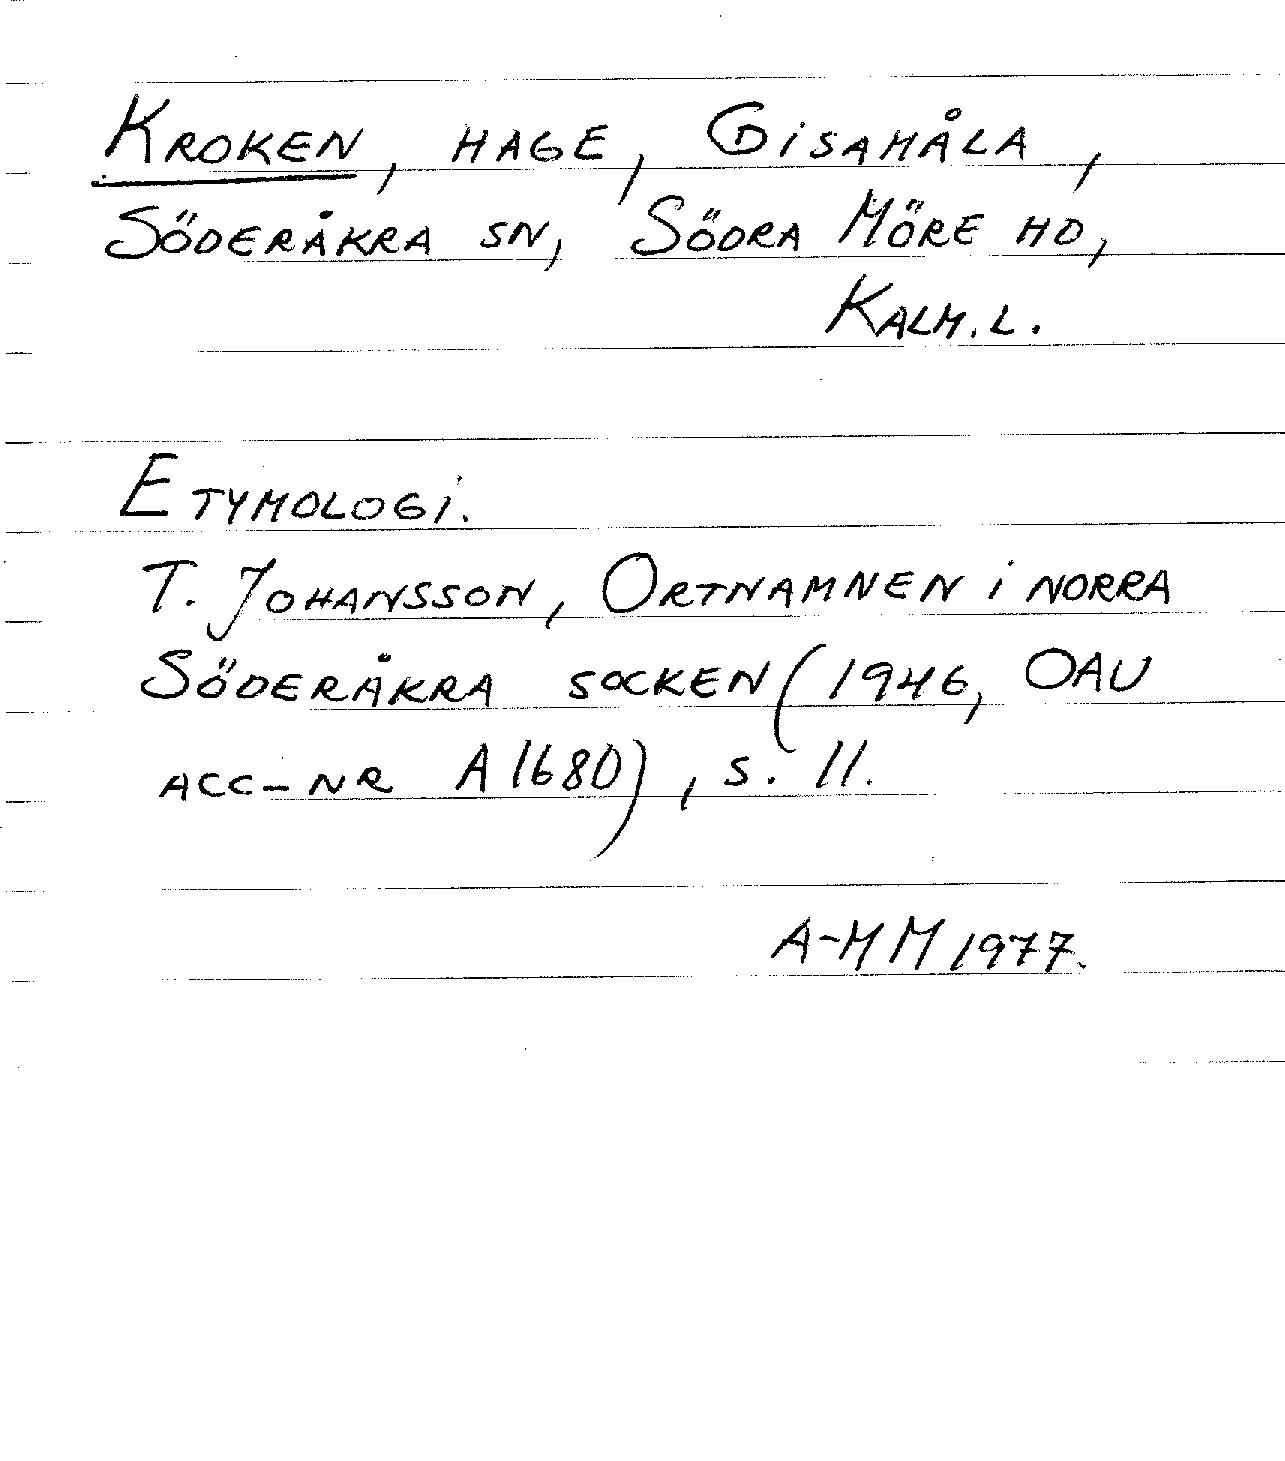 KROKEN, HAGE, GISAMÅLA,
SÖDERÅKRA SN, SÖDRA MÖRE HD,
KALM. L.
ETYMOLOGI.
T. JOHANSSON, ORTNAMNEN I NORRA
SÖDERÅKRA SOCKEN (1946, OAU
ACC-NR A1680), S. 11.
A-MM 1977.